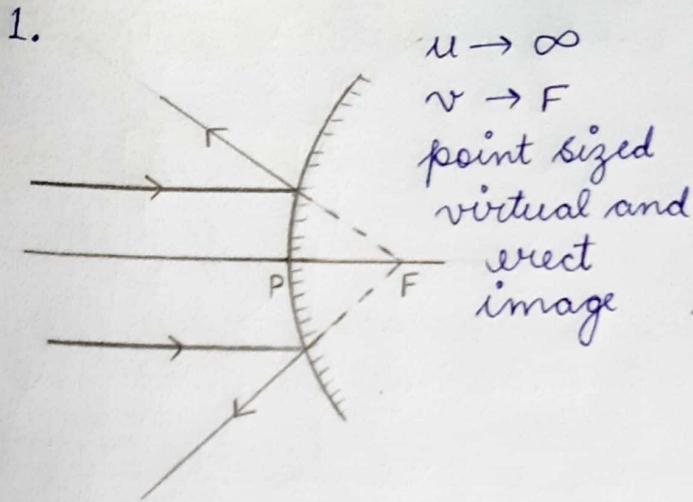 1.
u → ∞
v → F
point sized
virtual and
erect
image
P
F